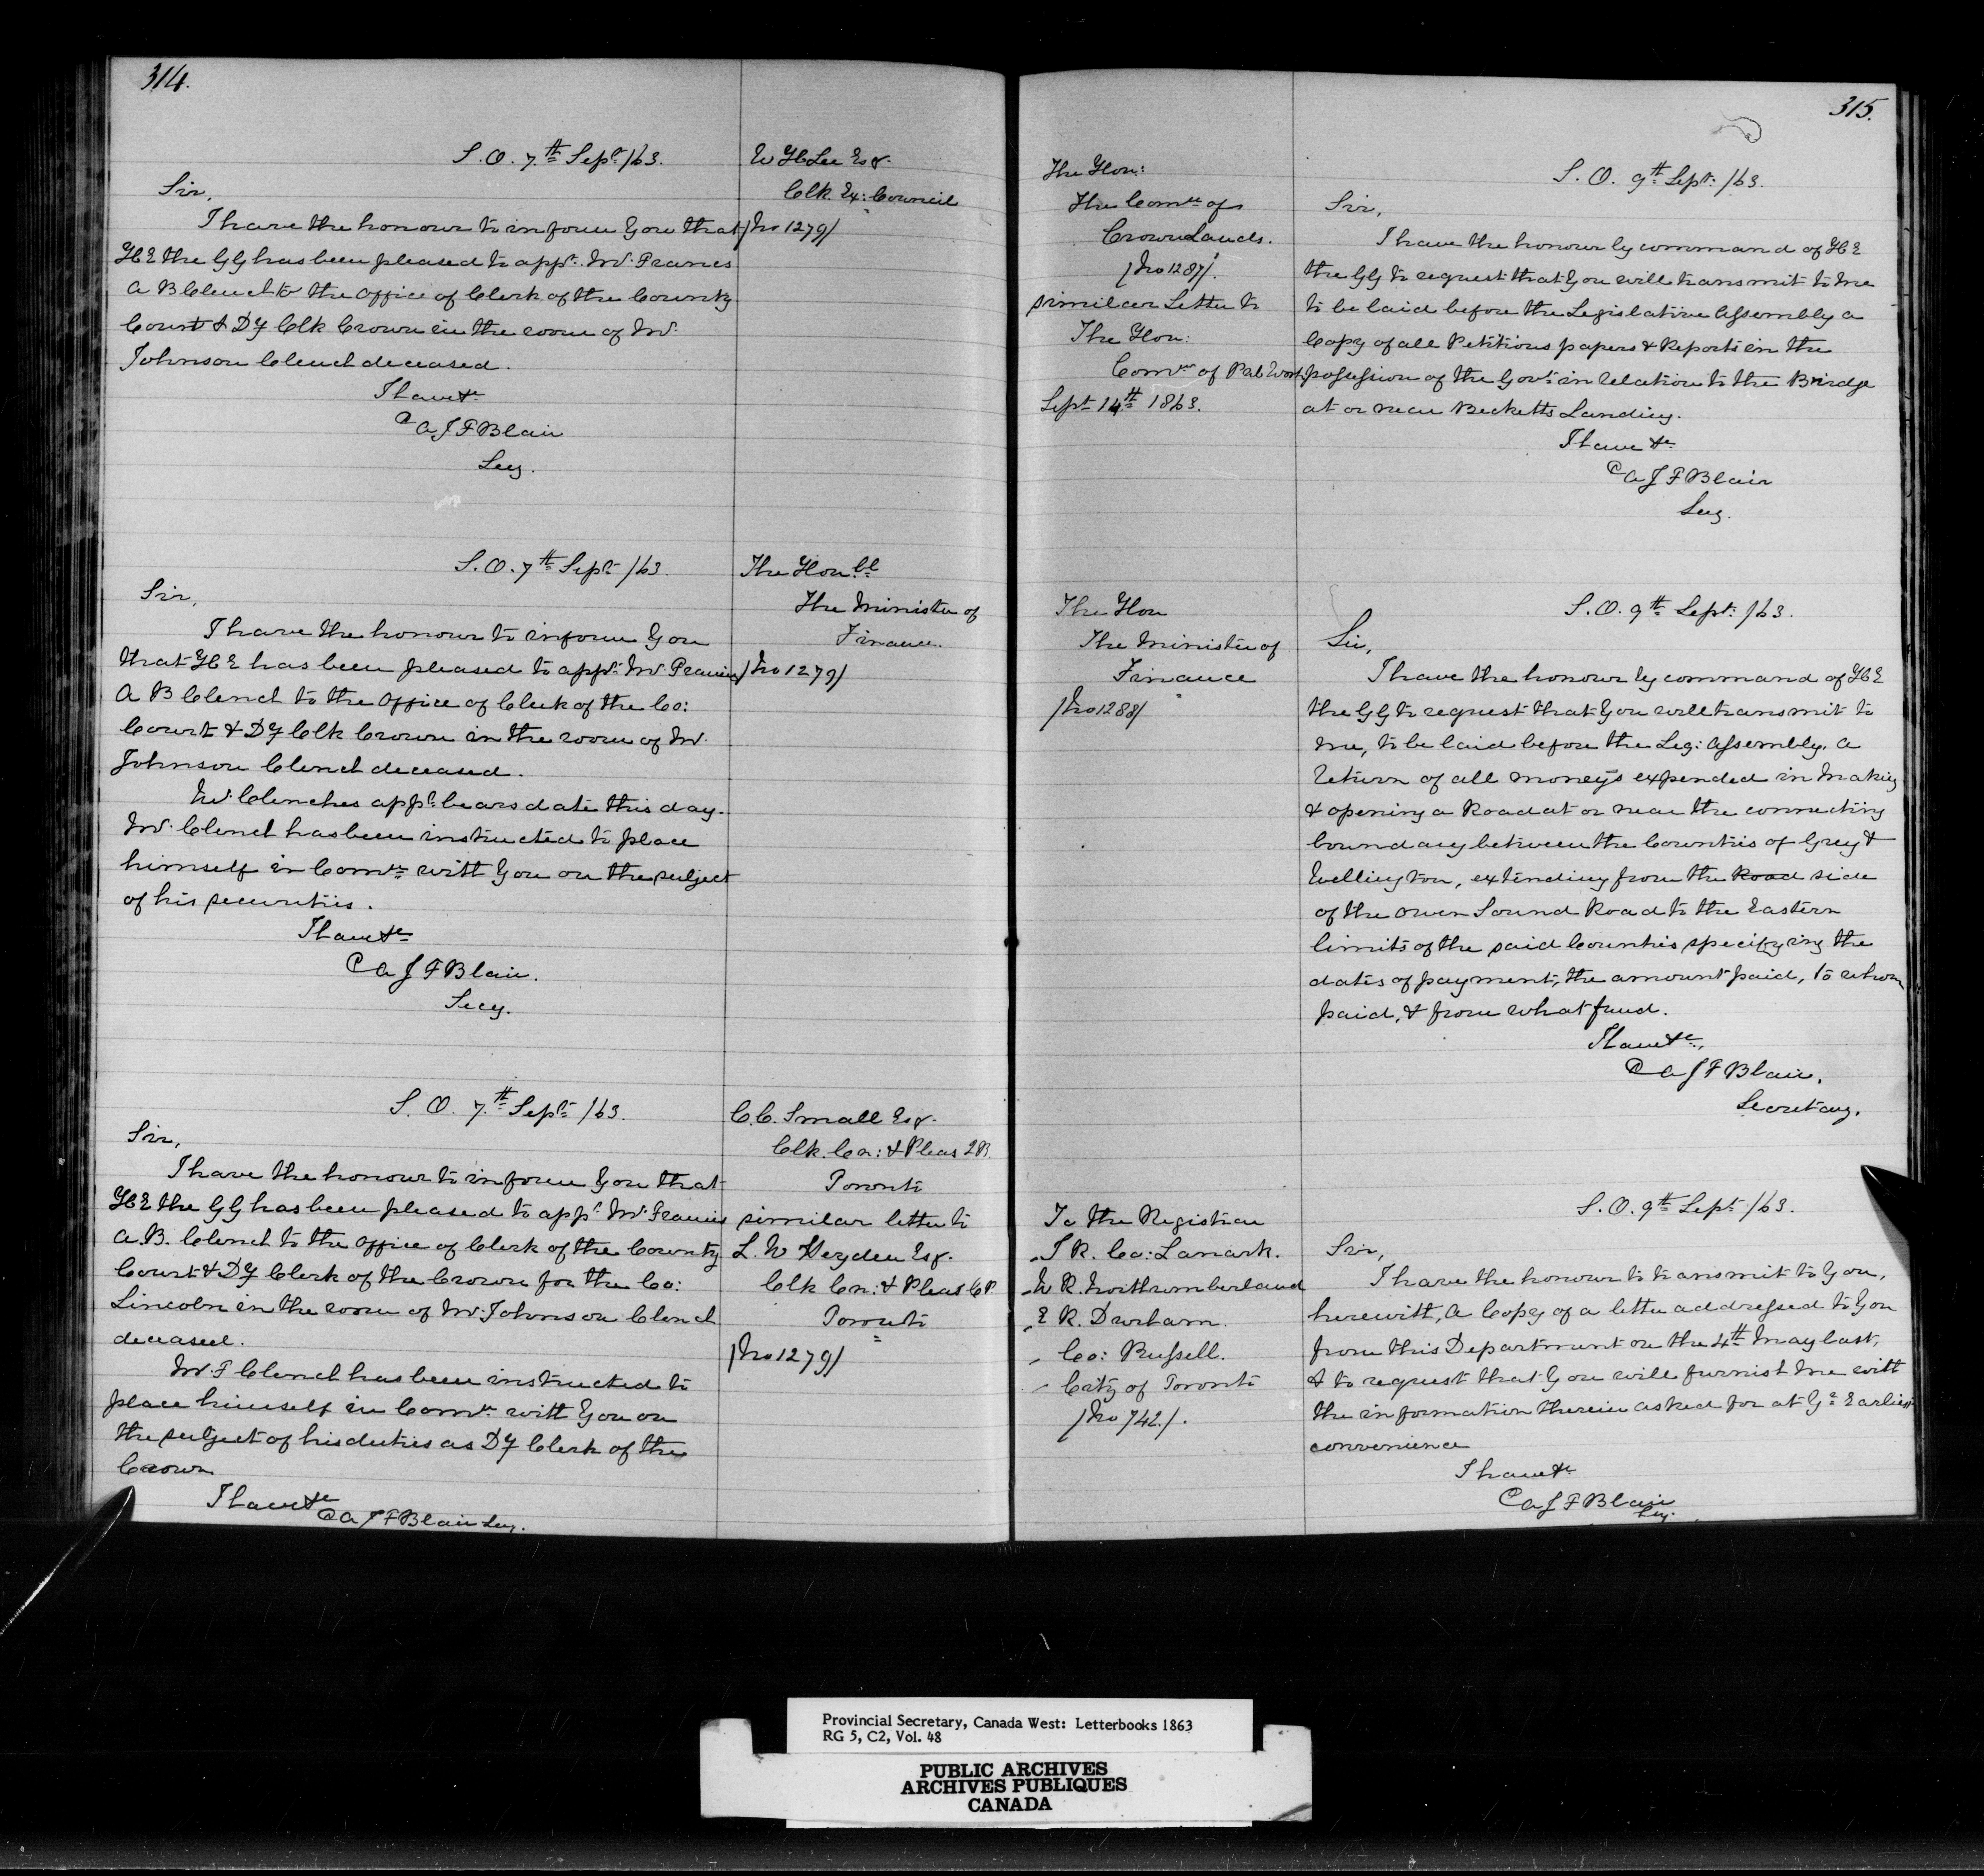 314.
S. O. 7th Sept. /63.
W H Lee Esqr.
Clk. Ex: Council
/No 1279/
Sir,
I have the honour to inform You that
H E the G G has been pleased to appt. Mr. Francis
A B Clench to the Office of Clerk of the County
Court & Dy Clk Crown in the room of Mr.
Johnson Clench deceased.
I have &c
A J F Blair
Secy.
S. O. 7th Sept. /63.
The Honble
The Minister of
Finance.
/No 1279/
Sir,
I have the honour to inform You
that H E has been pleased to appt. Mr Francis
A B Clench to the Office of Clerk of the Co:
Court & Dy Clk Crown in the room of Mr.
Johnson Clench deceased.
Mr. Clenches appt. bears date this day.
Mr. Clench has been instructed to place
himself in Comn. with You on the subject
of his securities.
I have &c
A J F Blair.
Secy.
S. O. 7th Sept. /63.
C. C. Small Esqr.
Clk. Cn: & Pleas QB
Toronto
similar letter to
L. W Heyden Esqr.
Clk Cn: & Pleas C P.
Toronto
/No 1279/
Sir,
I have the honour to inform You that
H E the G G has been pleased to appt. Mr. Francis
A. B. Clench to the Office of Clerk of the County
Court & Dy Clerk of the Crown for the Co:
Lincoln in the room of Mr. Johnson Clench
deceased.
Mr. F Clench has been instructed to
place himself in Comn. with You on
the subject of his duties as Dy Clerk of the
Crown
I have &c
A J F Blair Secy.
315.
The Hon:
The Comr. of
Crown Lands.
/No 1287/.
similar Letter to
The Hon:
Comr. of Pub Works
Sept. 14th 1863.
S. O. 9th Sept: /63.
Sir,
I have the honour by command of H E
the G G to request that You will transmit to me
to be laid before the Legislative Assembly a
Copy of all Petitions papers & Reports in the
possession of the Govt. in relation to the Bridge
at or near Becketts Landing.
I have &c.
A J F Blair
Secy.
The Hon
The Minister of
Finance
/No 1288/
S. O. 9th Sept: /63.
Sir,
I have the honour by command of H E
the G G to request that You will transmit to
me, to be laid before the Leg: Assembly, a
return of all moneys expended in making
& opening a Road at or near the connecting
boundary between the Counties of Grey &
Wellington, extending from the Road side
of the Owen Sound Road to the Eastern
limits of the said Counties specifying the
dates of payment, the amount paid, to whom
paid, & from what fund.
I have &c.
A J F Blair.
Secretary.
To the Registrar
S R. Co: Lanark.
W R. Northumberland
E R. Durham.
Co: Russell.
City of Toronto
/No 742/.
S. O. 9th Sept. /63.
Sir,
I have the honour to transmit to You,
herewith, a Copy of a letter addressed to You
from this Department on the 4th May last,
& to request that You will furnish me with
the information therein asked for at Yr. Earliest
convenience
I have &c
A J F Blair
Secy.
Provincial Secretary, Canada West: Letterbooks 1863
RG 5, C2, Vol. 48
PUBLIC ARCHIVES
ARCHIVES PUBLIQUES
CANADA